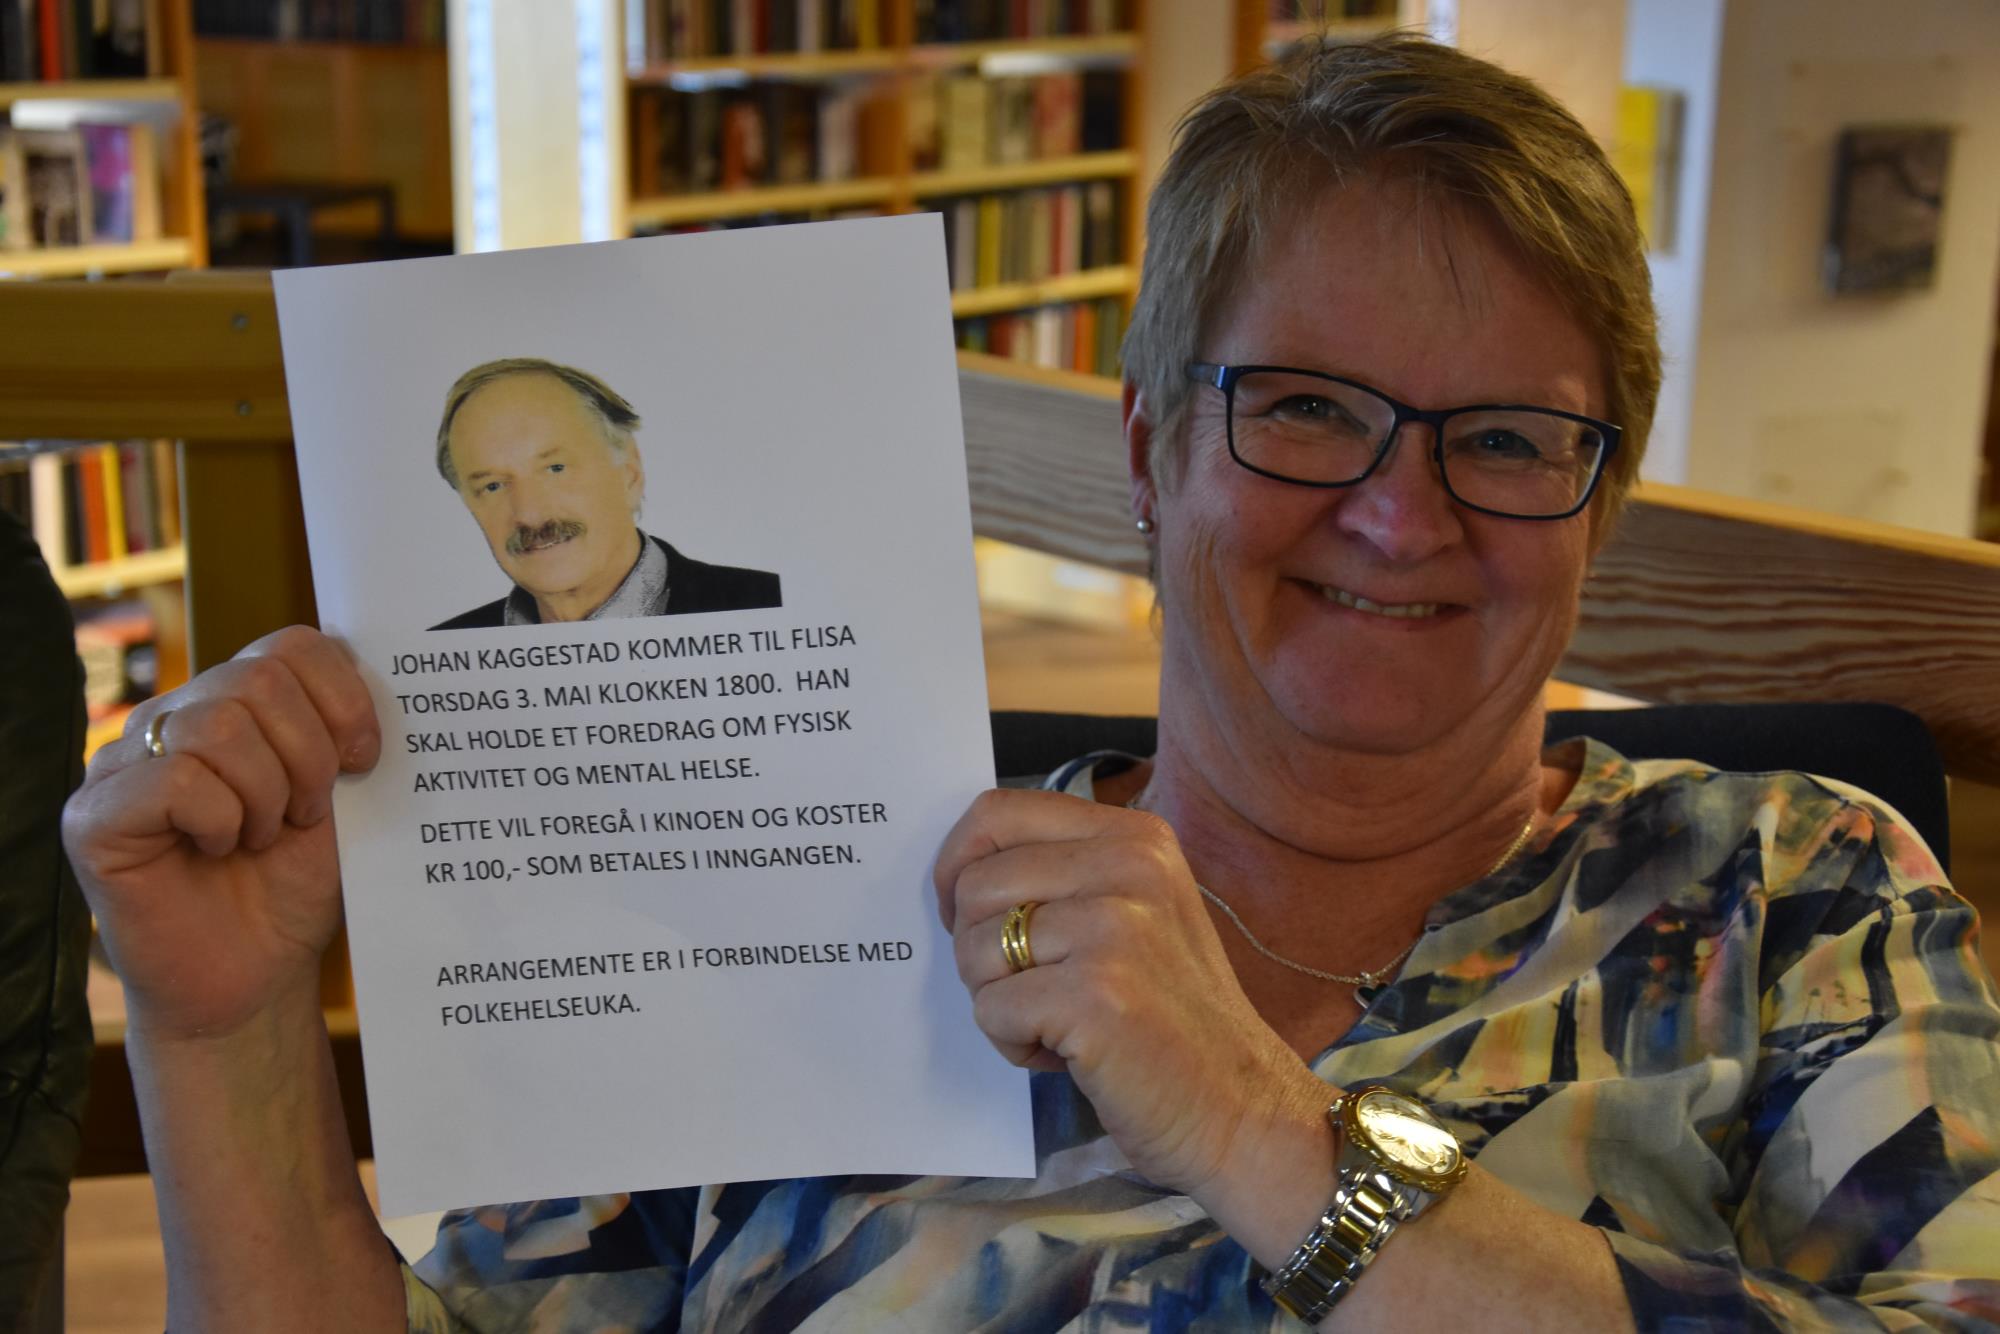 JOHAN KAGGESTAD KOMMER TIL FLISA
TORSDAG 3. MAI KLOKKEN 1800.  HAN
SKAL HOLDE ET FOREDRAG OM FYSISK
AKTIVITET OG MENTAL HELSE.
DETTE VIL FOREGÅ I KINOEN OG KOSTER
KR 100,- SOM BETALES I INNGANGEN.
ARRANGEMENTE ER I FORBINDELSE MED
FOLKEHELSEUKA.